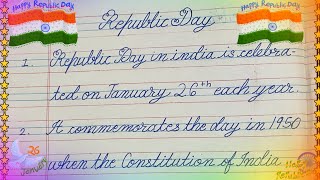 Happy Republic Day
Happy Republic Day
Republic Day
1. Republic Day in india is celebra-
ted on January 26th each year.
2. It commemorates the day in 1950
when the Constitution of India
26
January